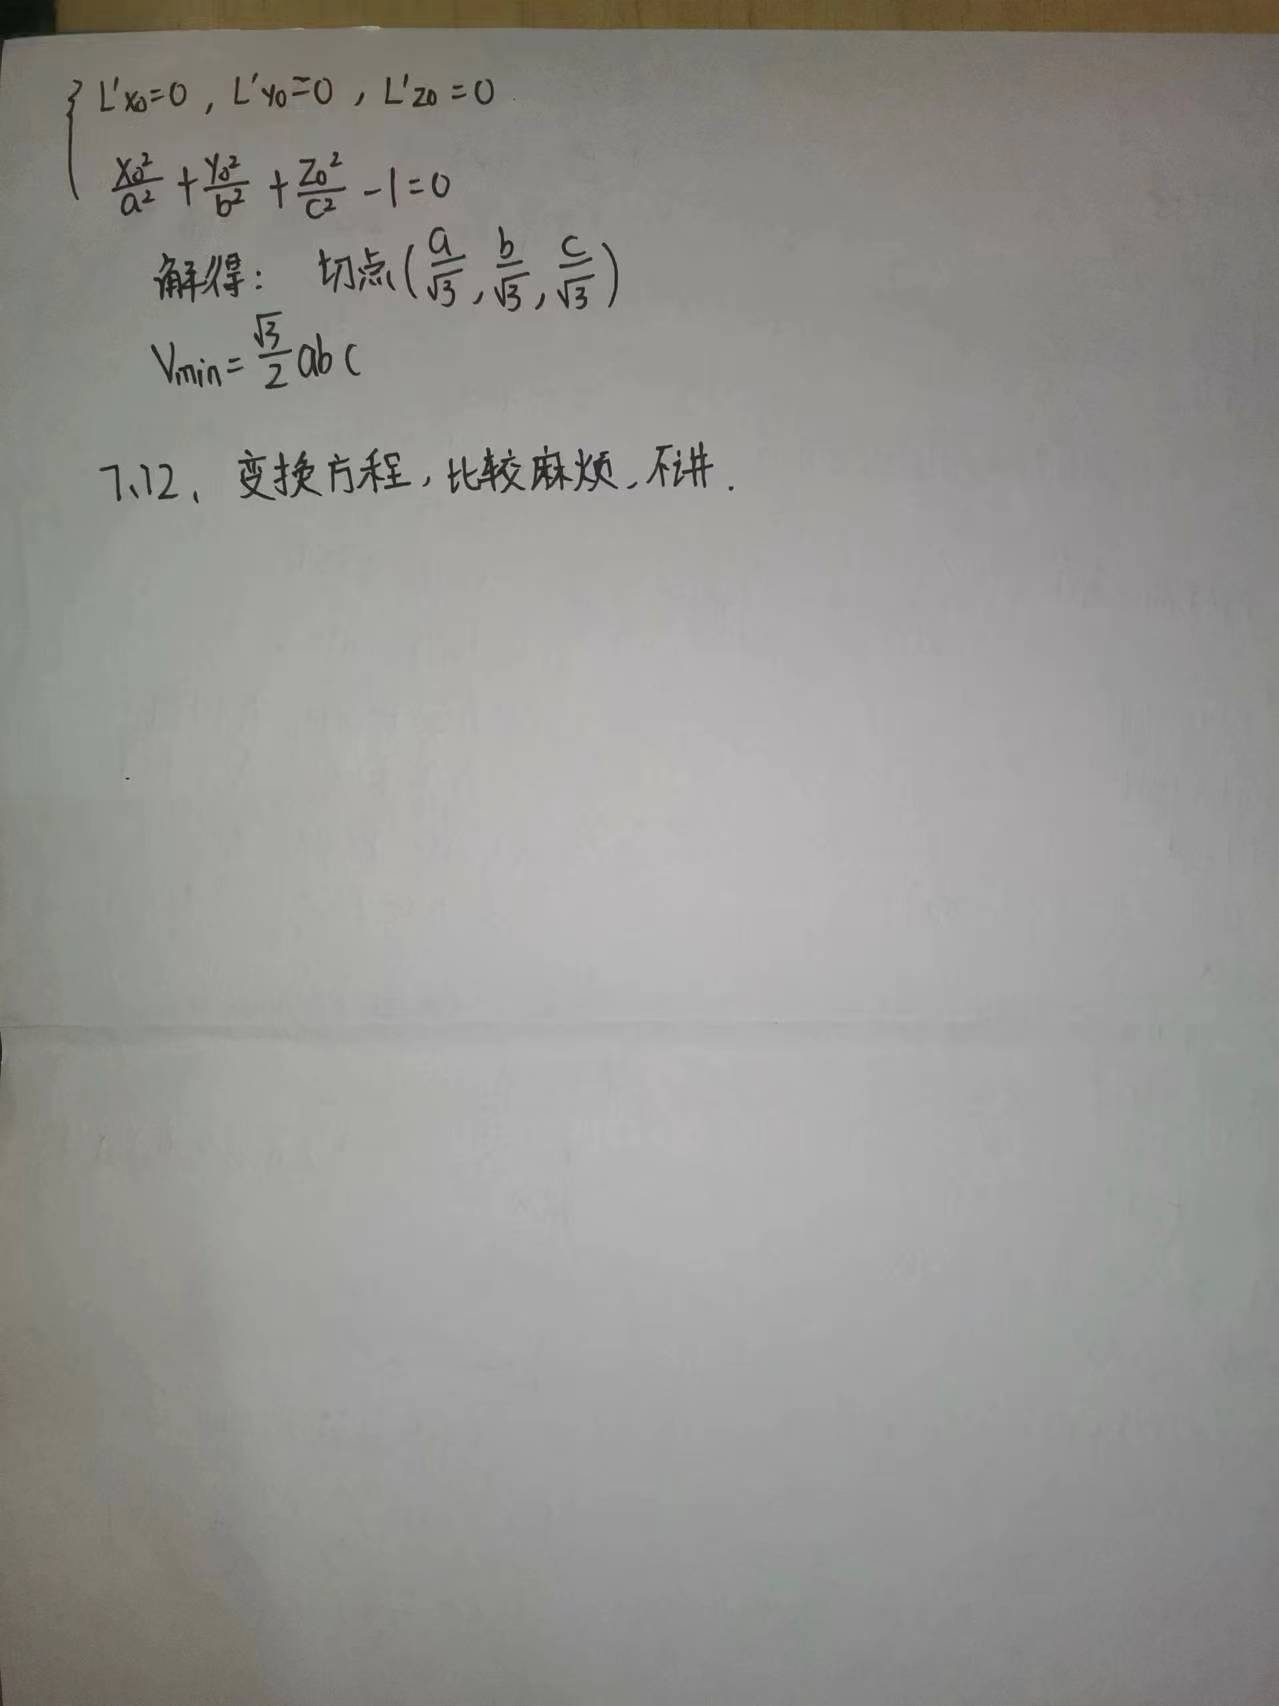 { L'x₀=0, L'y₀=0, L'z₀=0
x₀²/a² + y₀²/b² + z₀²/c² -1=0
解得: 切点(a/√3, b/√3, c/√3)
Vmin=√3/2 abc
7.12、变换方程,比较麻烦,不讲.